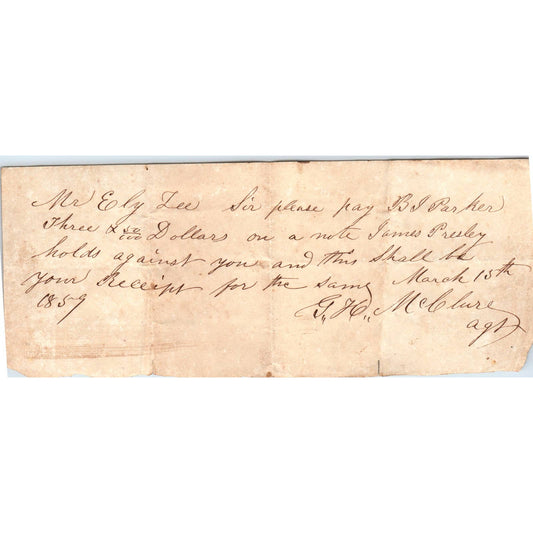 Mr Ely Lee Sir please pay B J Parker
Three & 50/100 Dollars on a note James Presley
holds against you and this Shall be
your Receipt for the same March 15th
1859
G,, H,, McClure
agt